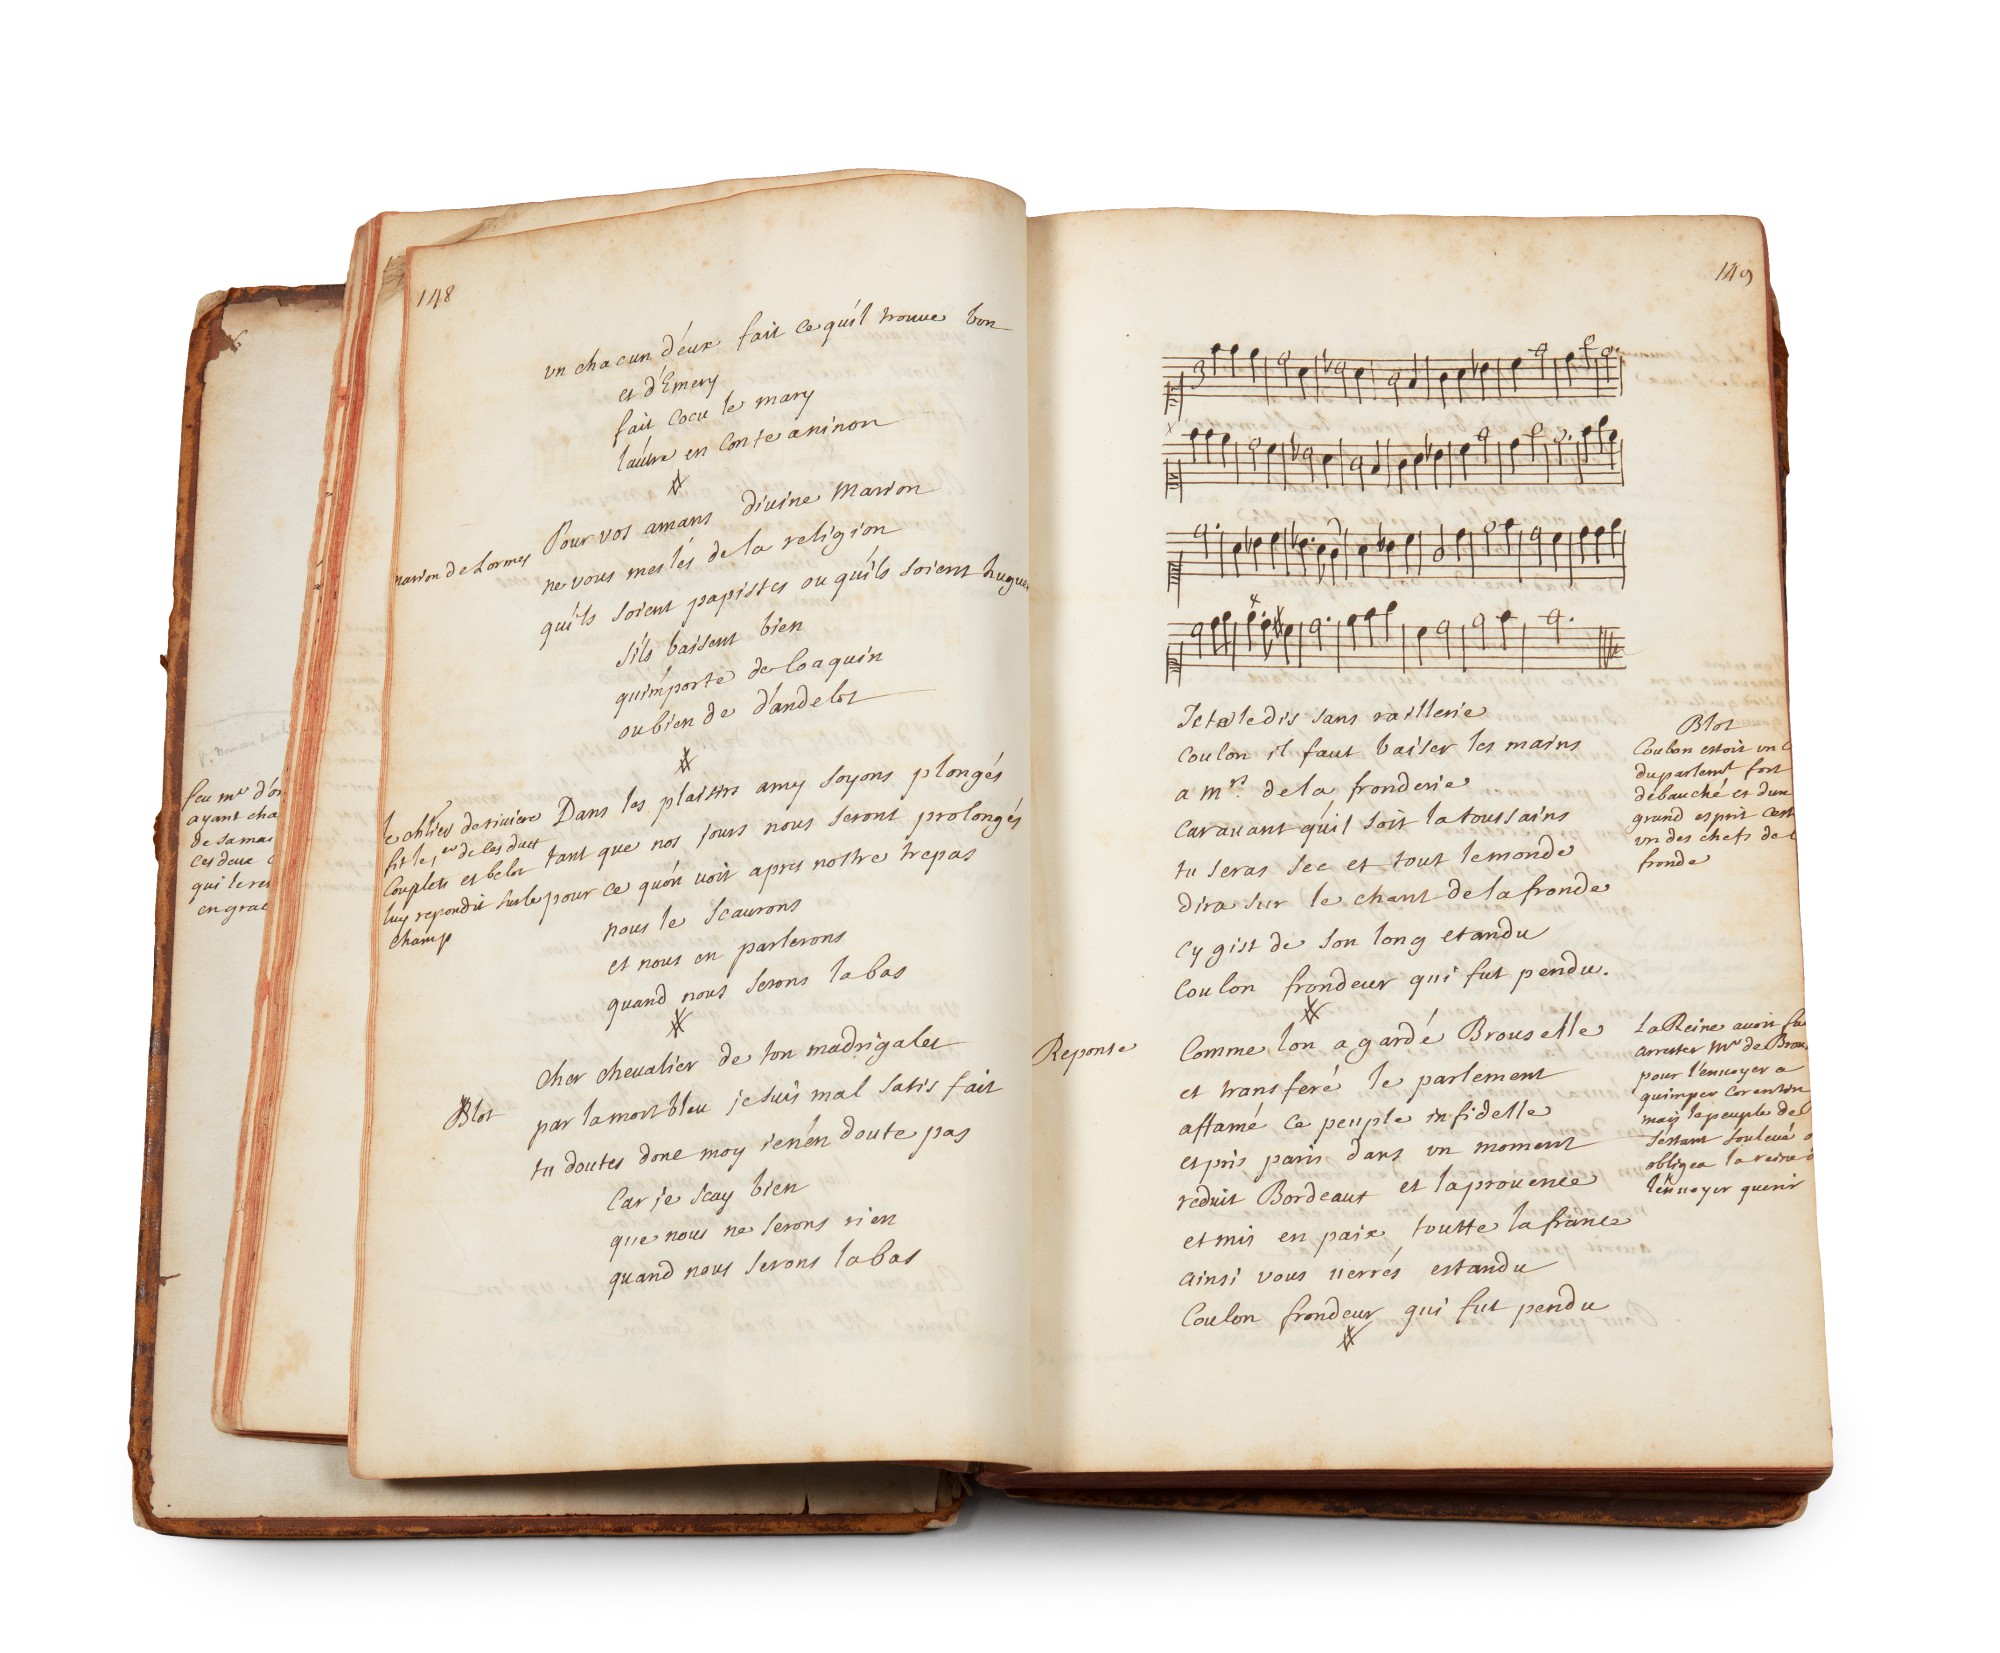 148
vn chacun d'eux fait ce qu'il trouue bon
et d'Emery
fait cocu le mary
l'autre en conte a ninon
Pour vos amans divine Marion
ne vous meslés de la religion
qu'ils soient papistes ou qu'ils soient hugue
s'ils baisent bien
qu'importe de Coaquin
ou bien de d'andelot
marion de Lormes
Dans les plaisirs amy soyons plongés
tant que nos jours nous seront prolongés
pour ce qu'on voit apres nostre trepas
nous le scaurons
et nous en parlerons
quand nous serons la bas
le chler de riuiere
fit le 1er de ces deux
Couplets et belot
luy repondit sur le
champ
Cher cheualier de ton madrigalet
par la mort bleu je suis mal satis fait
tu doutes donc moy je n'en doute pas
Car je scay bien
que nous ne serons rien
quand nous serons la bas
Blot
feu mr d'or
ayant cha
de sa mai
ces deux
qui le re
en grac
149
3
Je te le dis sans raillerie
Coulon il faut baiser les mains
a mrs. de la fronderie
Car auant qu'il soit la toussains
tu seras sec et tout le monde
dira sur le chant de la fronde
Cy gist de son long etandu
Coulon frondeur qui fut pendu.
Blot
Coulon estoit un C
du parlemt fort
debauché et d'un
grand esprit c'est
vn des chefs de l
fronde
Reponse
Comme l'on a gardé Brouselle
et transferé le parlement
affamé ce peuple infidelle
et pris paris dans un moment
reduit Bordeaux et la prouence
et mis en paix toutte la france
ainsi vous uerrés estandu
Coulon frondeur qui fut pendu
La Reine auoit fai
arrester Mr de Brous
pour l'enuoyer a
quimper Corentin
mais le peuple de
s'estant souleué
obligea la reine
l'enuoyer querir